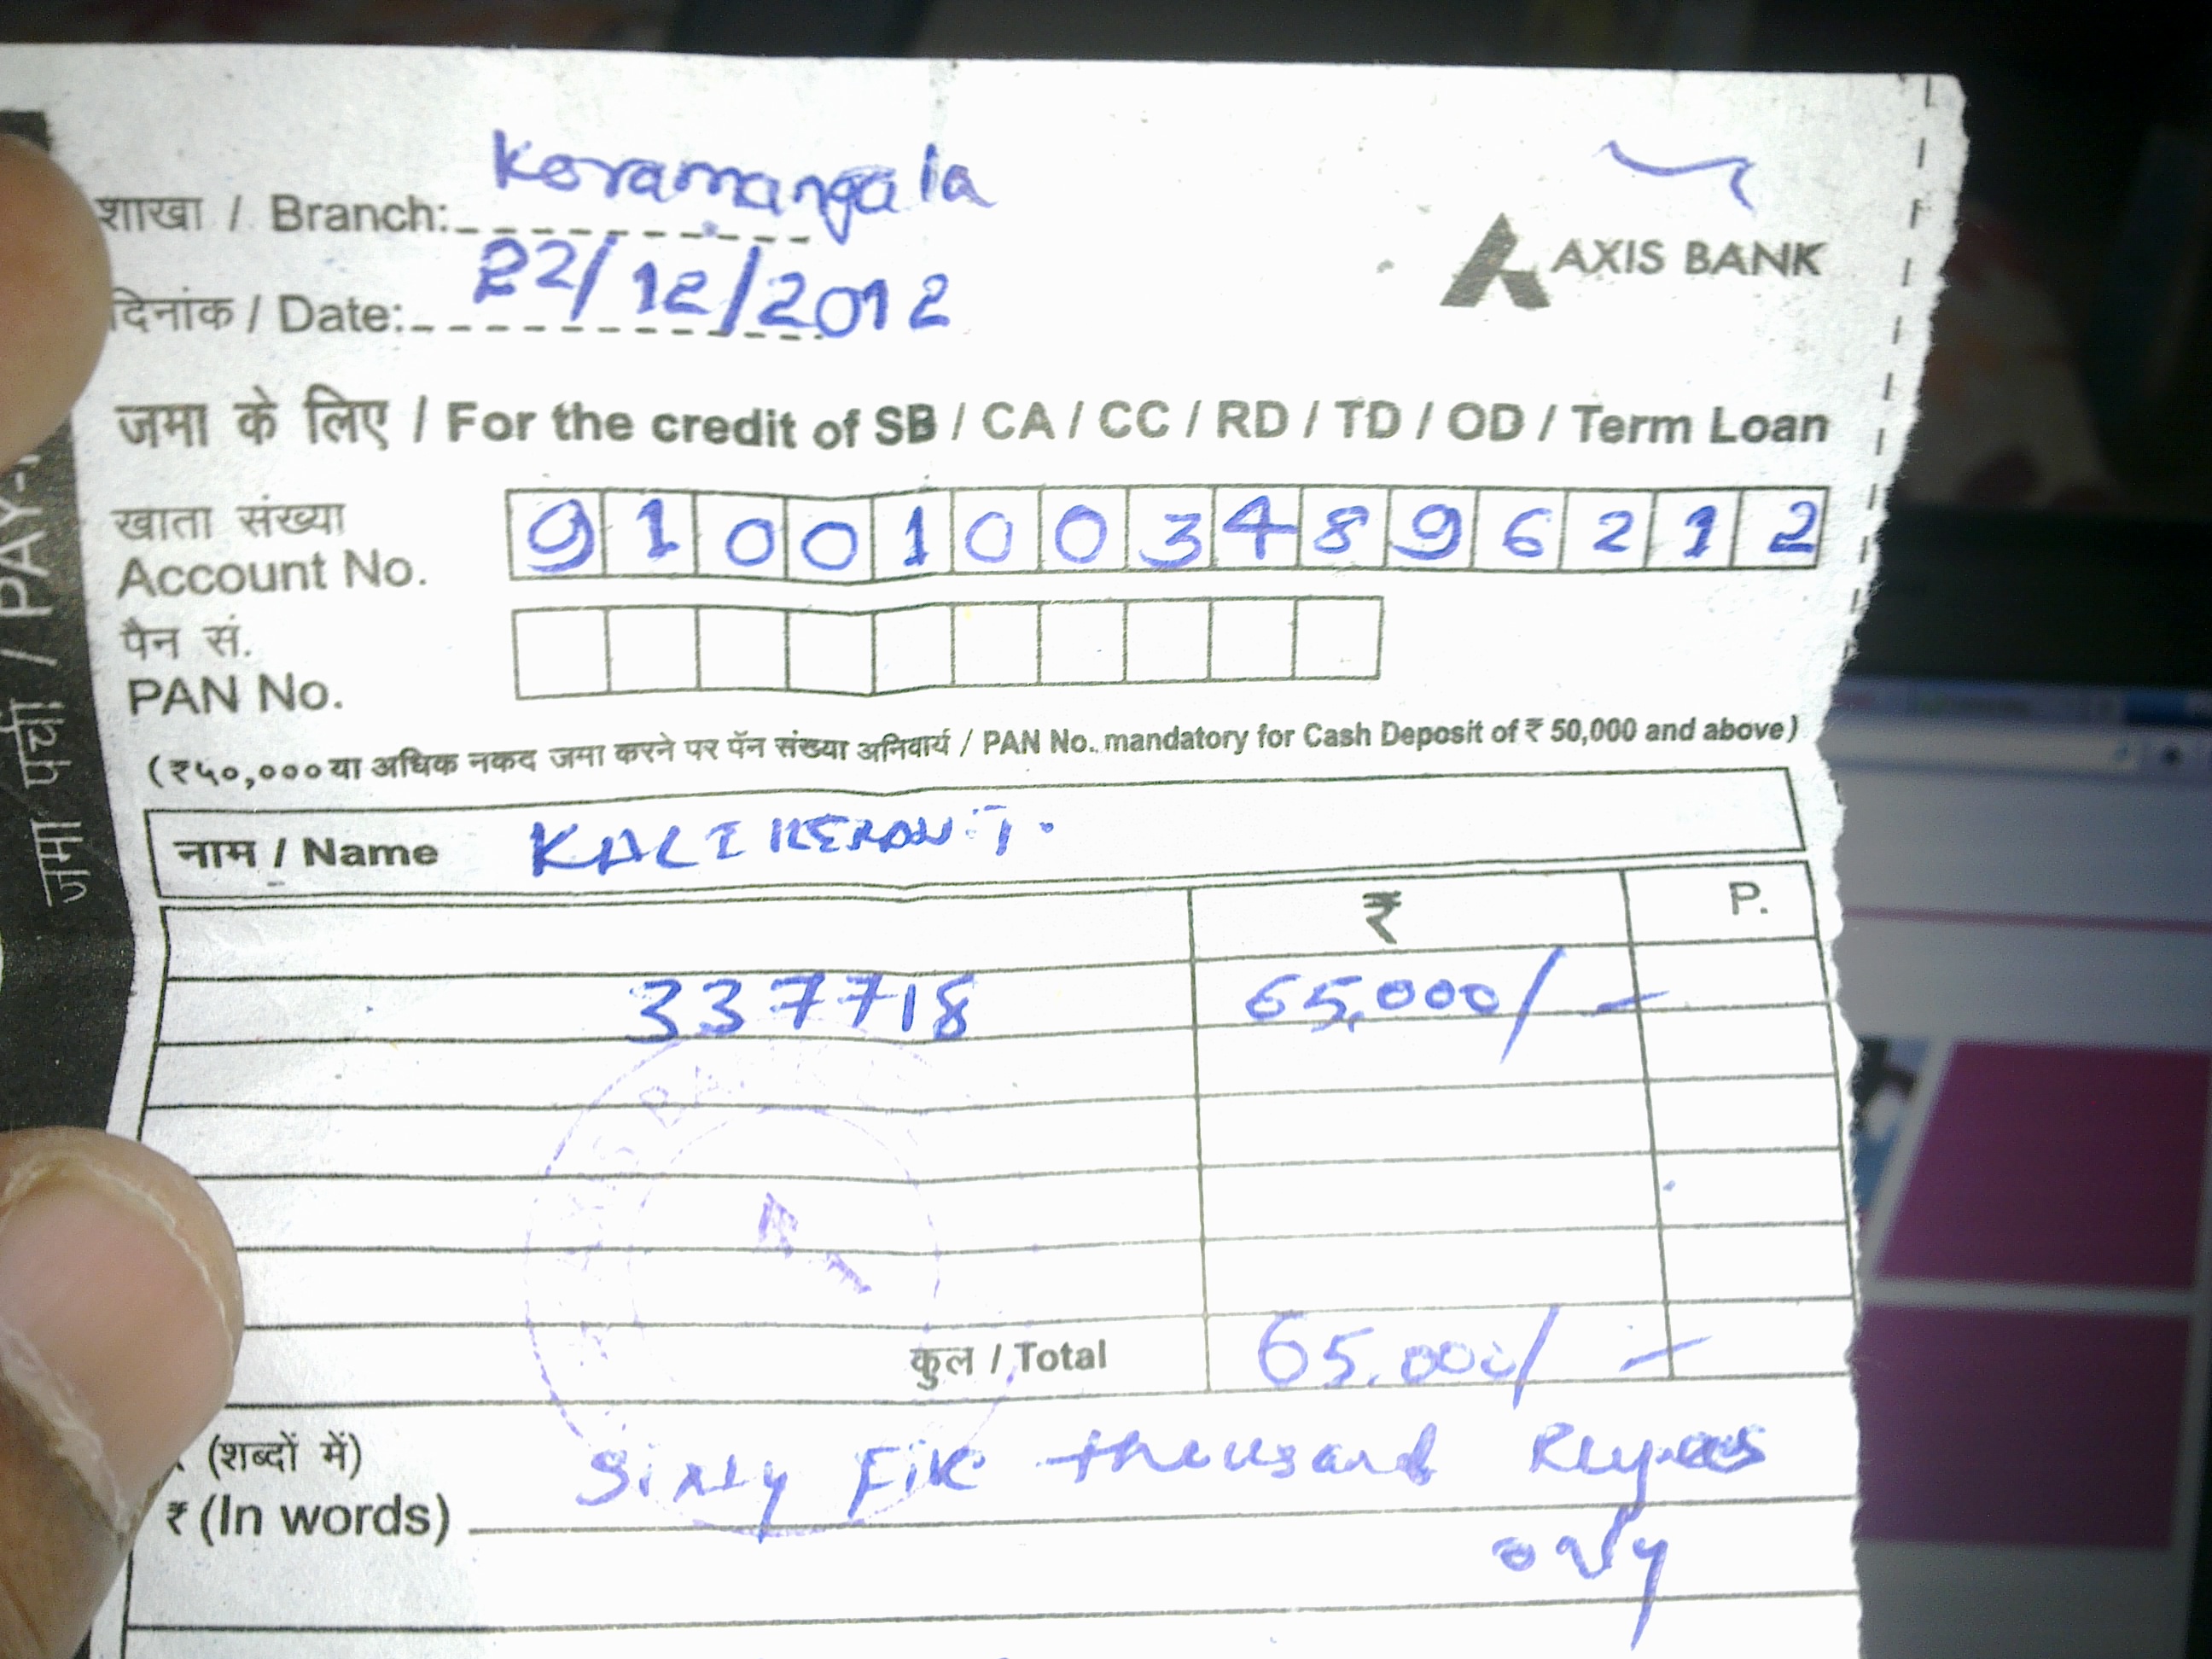 शाखा / Branch: Koramangala
दिनांक / Date: 22/12/2012
AXIS BANK
जमा के लिए / For the credit of SB / CA / CC / RD / TD / OD / Term Loan
खाता संख्या
Account No. 910010034896212
पैन सं.
PAN No.
(₹५०,००० या अधिक नकद जमा करने पर पॅन संख्या अनिवार्य / PAN No. mandatory for Cash Deposit of ₹ 50,000 and above)
नाम / Name
₹ P.
337718 65,000/-
कुल / Total 65.000/-
(शब्दों में) Sixty Five thousand Rupees
₹ (In words)
only
जमा पर्ची / PAY-